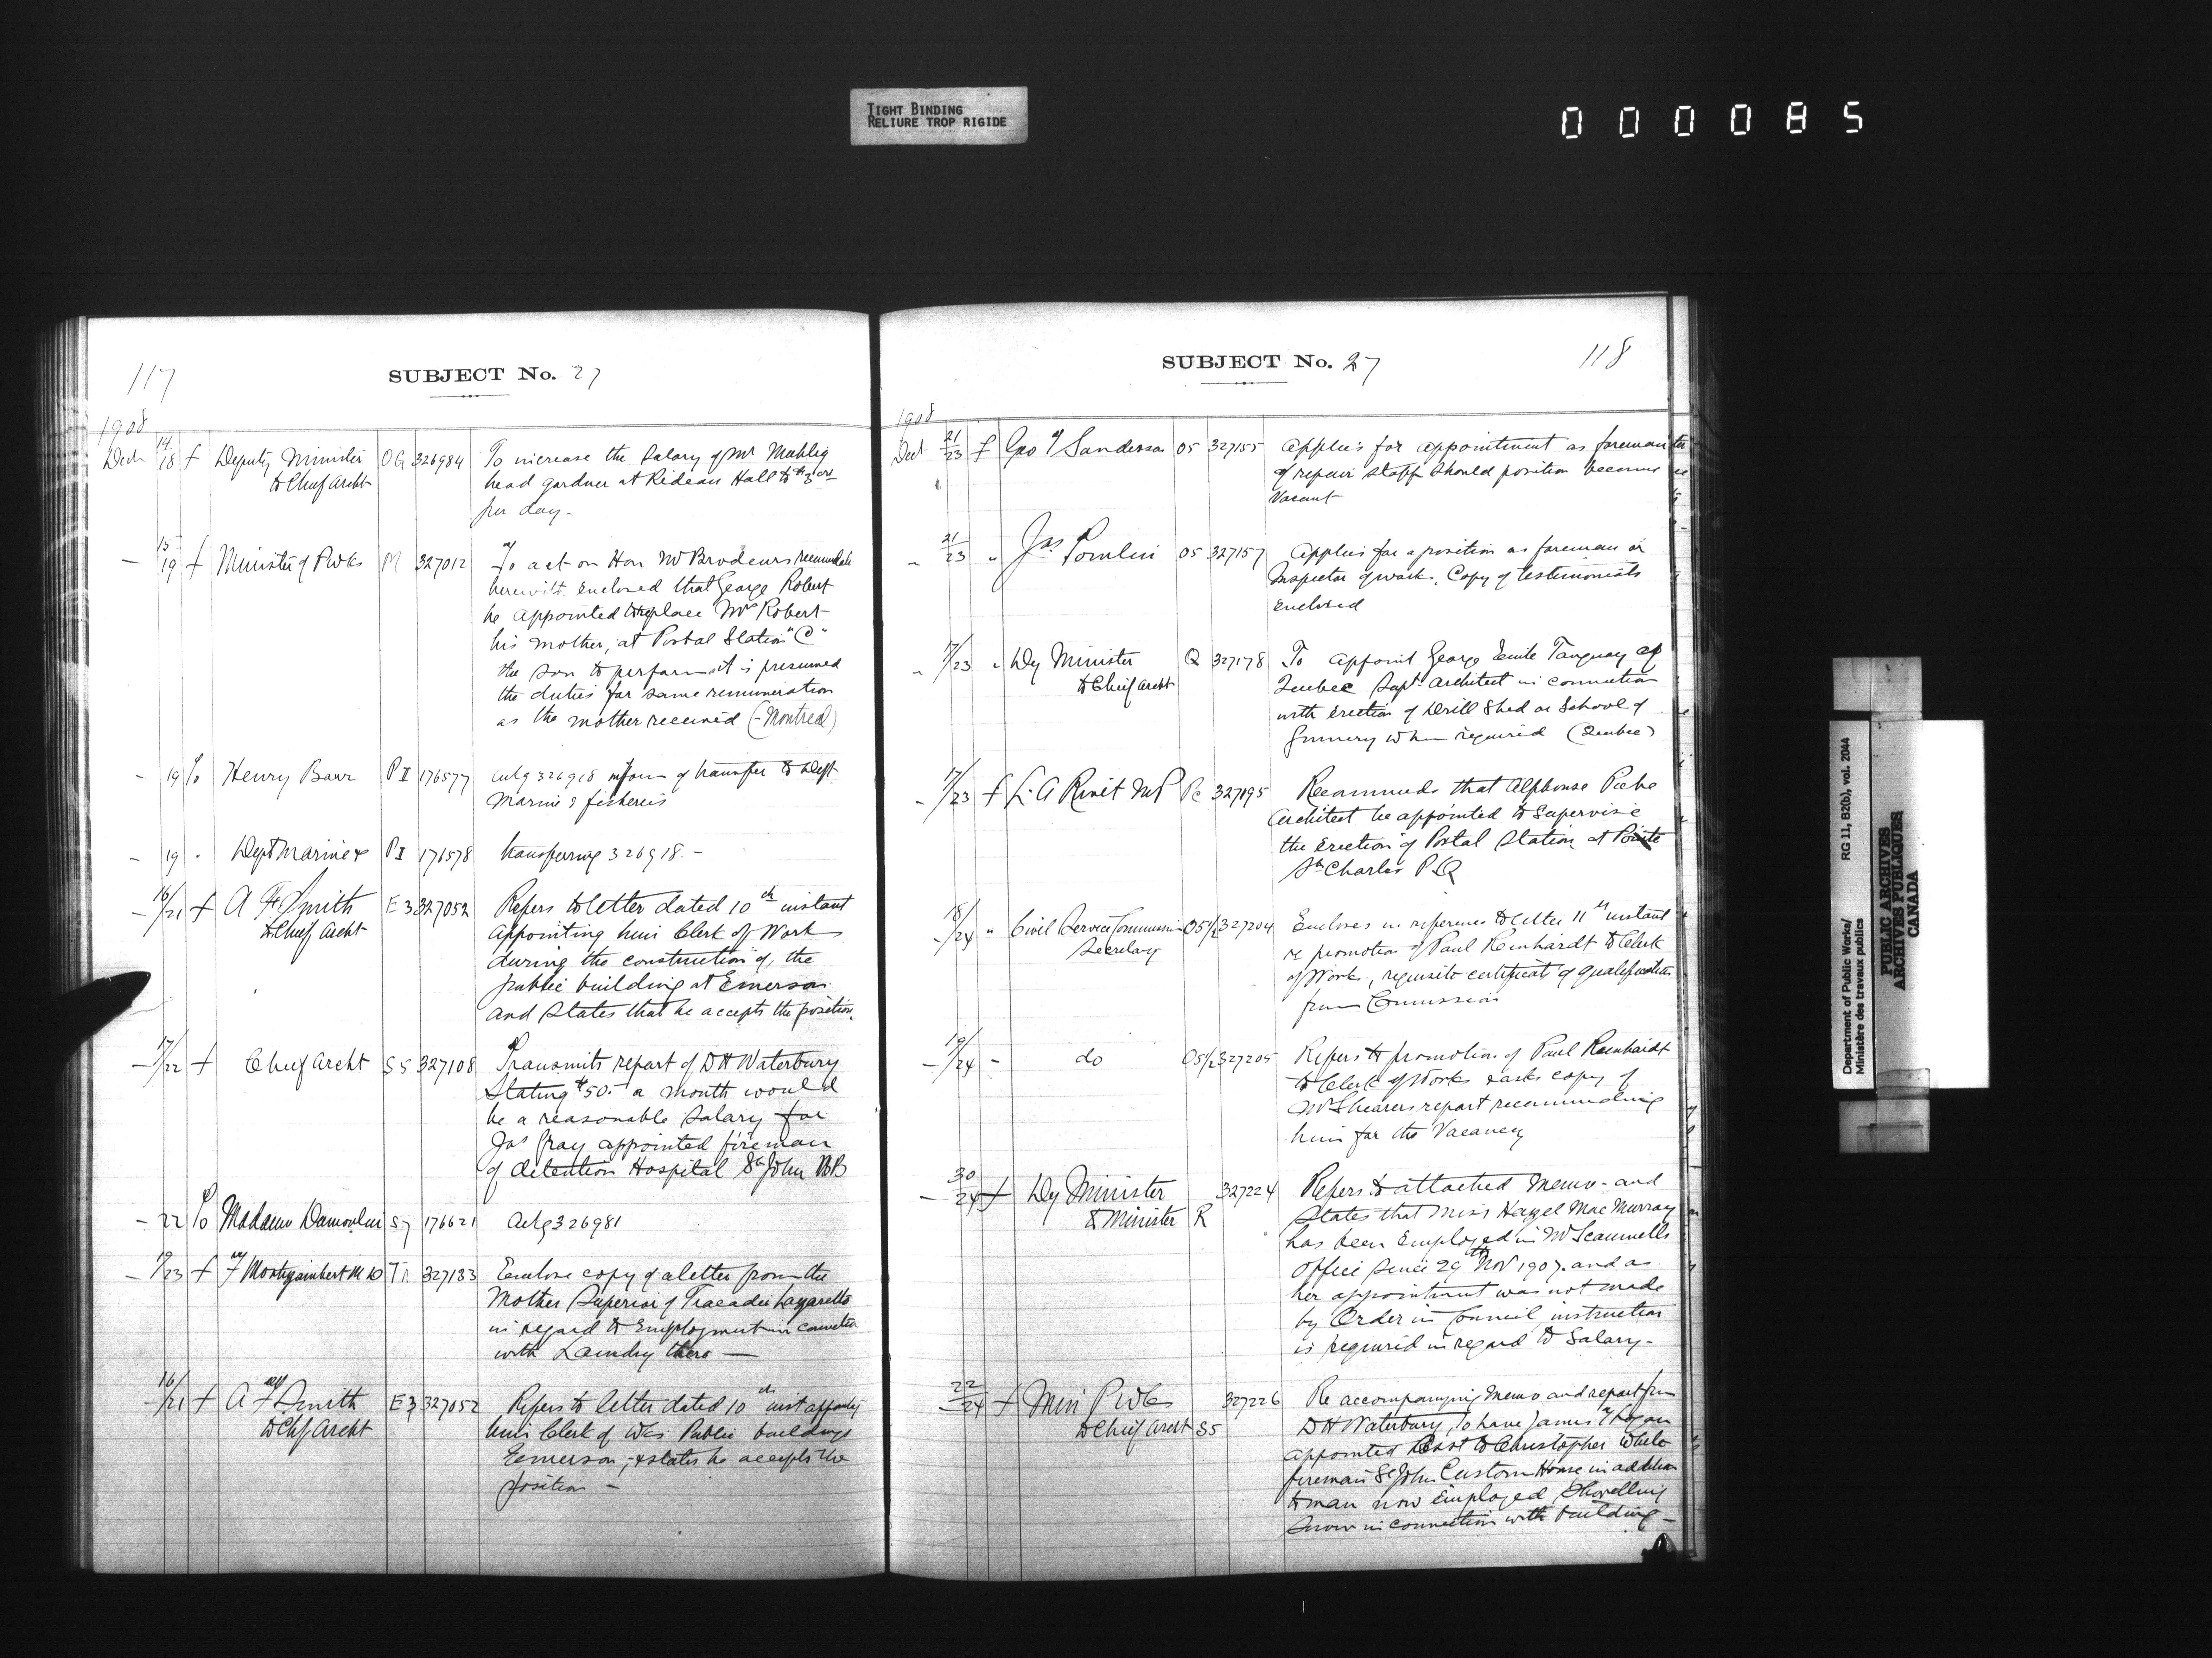 TIGHT BINDING
RELIURE TROP RIGIDE
000085
117
SUBJECT No. 27
1908
Dec 14/18 f Deputy Minister OG 326984 To increase the salary of Mr
to Chief Archt head gardner at Rideau Hall to $3.00
per day -
- 15/19 f Minister of P Wks M 327012 To act on Hon Mr Brodeurs
herewith enclosed that George Robert
be appointed to replace Mrs Robert
his mother, at Postal Station "C"
the son to perform it is presumed
the duties for same remuneration
as the mother received (- Montreal)
- 19 To Henry Barr PI 176577 326918 of transfer to Dept
Marine & fisheries
- 19 " Dept Marine & PI 176578 transferring 326918. -
- 16/21 f A F Smith E3 327052 Refers to letter dated 10th instant
to Chief Archt appointing him Clerk of Work
during the construction of the
public building at Emerson
and states that he accepts the position.
- 17/22 f Chief Archt S5 327108 Transmits report of D H Waterbury
stating $50.- a month would
be a reasonable salary for
Jas Gray appointed fireman
of detention Hospital St John NB
- 22 To Madame S7 176621 326981
- 19/23 f F Montizambert MD Tr 327133 Enclose copy of a letter from the
Mother Superior of Tracadie Lazaretto
in regard to Employment in
with Laundry there -
- 16/21 f A F Smith E3 327052 Refers to letter dated 10th inst
to Chf Archt him Clerk of Wks Public buildings
Emerson, & states he accepts the
position -
SUBJECT No. 27
118
1908
Dec 21/23 f Geo Sanderson O5 327155 Applies for appointment as foreman
of repair staff should position become
vacant
- 21/23 " Jas Tomlin O5 327157 Applies for a position as foreman or
Inspector of works, Copy of testimonials
enclosed
- 17/23 " Dy Minister Q 327178 To appoint George Emile Tanguay of
to Chief Archt Quebec Supt. Architect in connection
with Erection of Drill Shed or School of
Gunnery when required (Quebec)
- 17/23 f L. A Rivet MP 327195 Recommends that Alphonse Piche
Architect be appointed to supervise
the Erection of Postal Station at Pointe
St Charles P.Q
- 18/24 " Civil Service Commission O5½ 327204 Encloses in reference to letter 11th instant
Secretary re promotion of Paul Reinhardt to Clerk
of Works, requisite certificate of qualification
from Commission
- 19/24 - do O5½ 327205 Refers to promotion of Paul Reinhardt
to Clerk of Works & asks copy of
Mr Shearers report recommending
him for the Vacancy
- 30/24 f Dy Minister 327224 Refers to attached memo - and
to Minister R states that Miss Hazel MacMurray
has been Employed in Mr Scammells
Office since 29th Nov 1907. and as
her appointment was not made
by Order in Council, instruction
is required in regard to Salary -
- 22/24 f Min P Wks 327226 Re accompanying memo and report from
to Chief Archt S5 D H Waterbury, to have James Logan
appointed Asst to Christopher White
fireman St John Custom House in addition
to man now Employed shovelling
snow in connection with building -
Department of Public Works/ RG 11, B2(b), vol. 2044
Ministère des travaux publics
PUBLIC ARCHIVES
ARCHIVES PUBLIQUES
CANADA